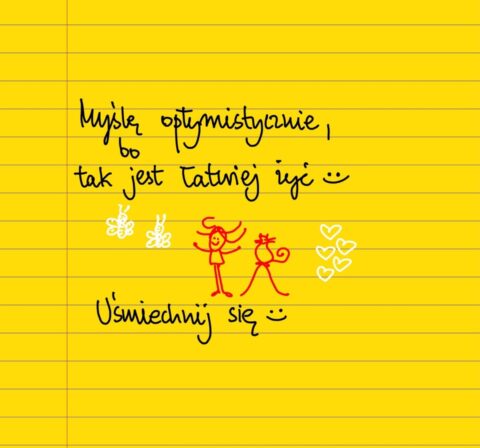 Myślę optymistycznie,
bo
tak jest łatwiej żyć :)
Uśmiechnij się :)